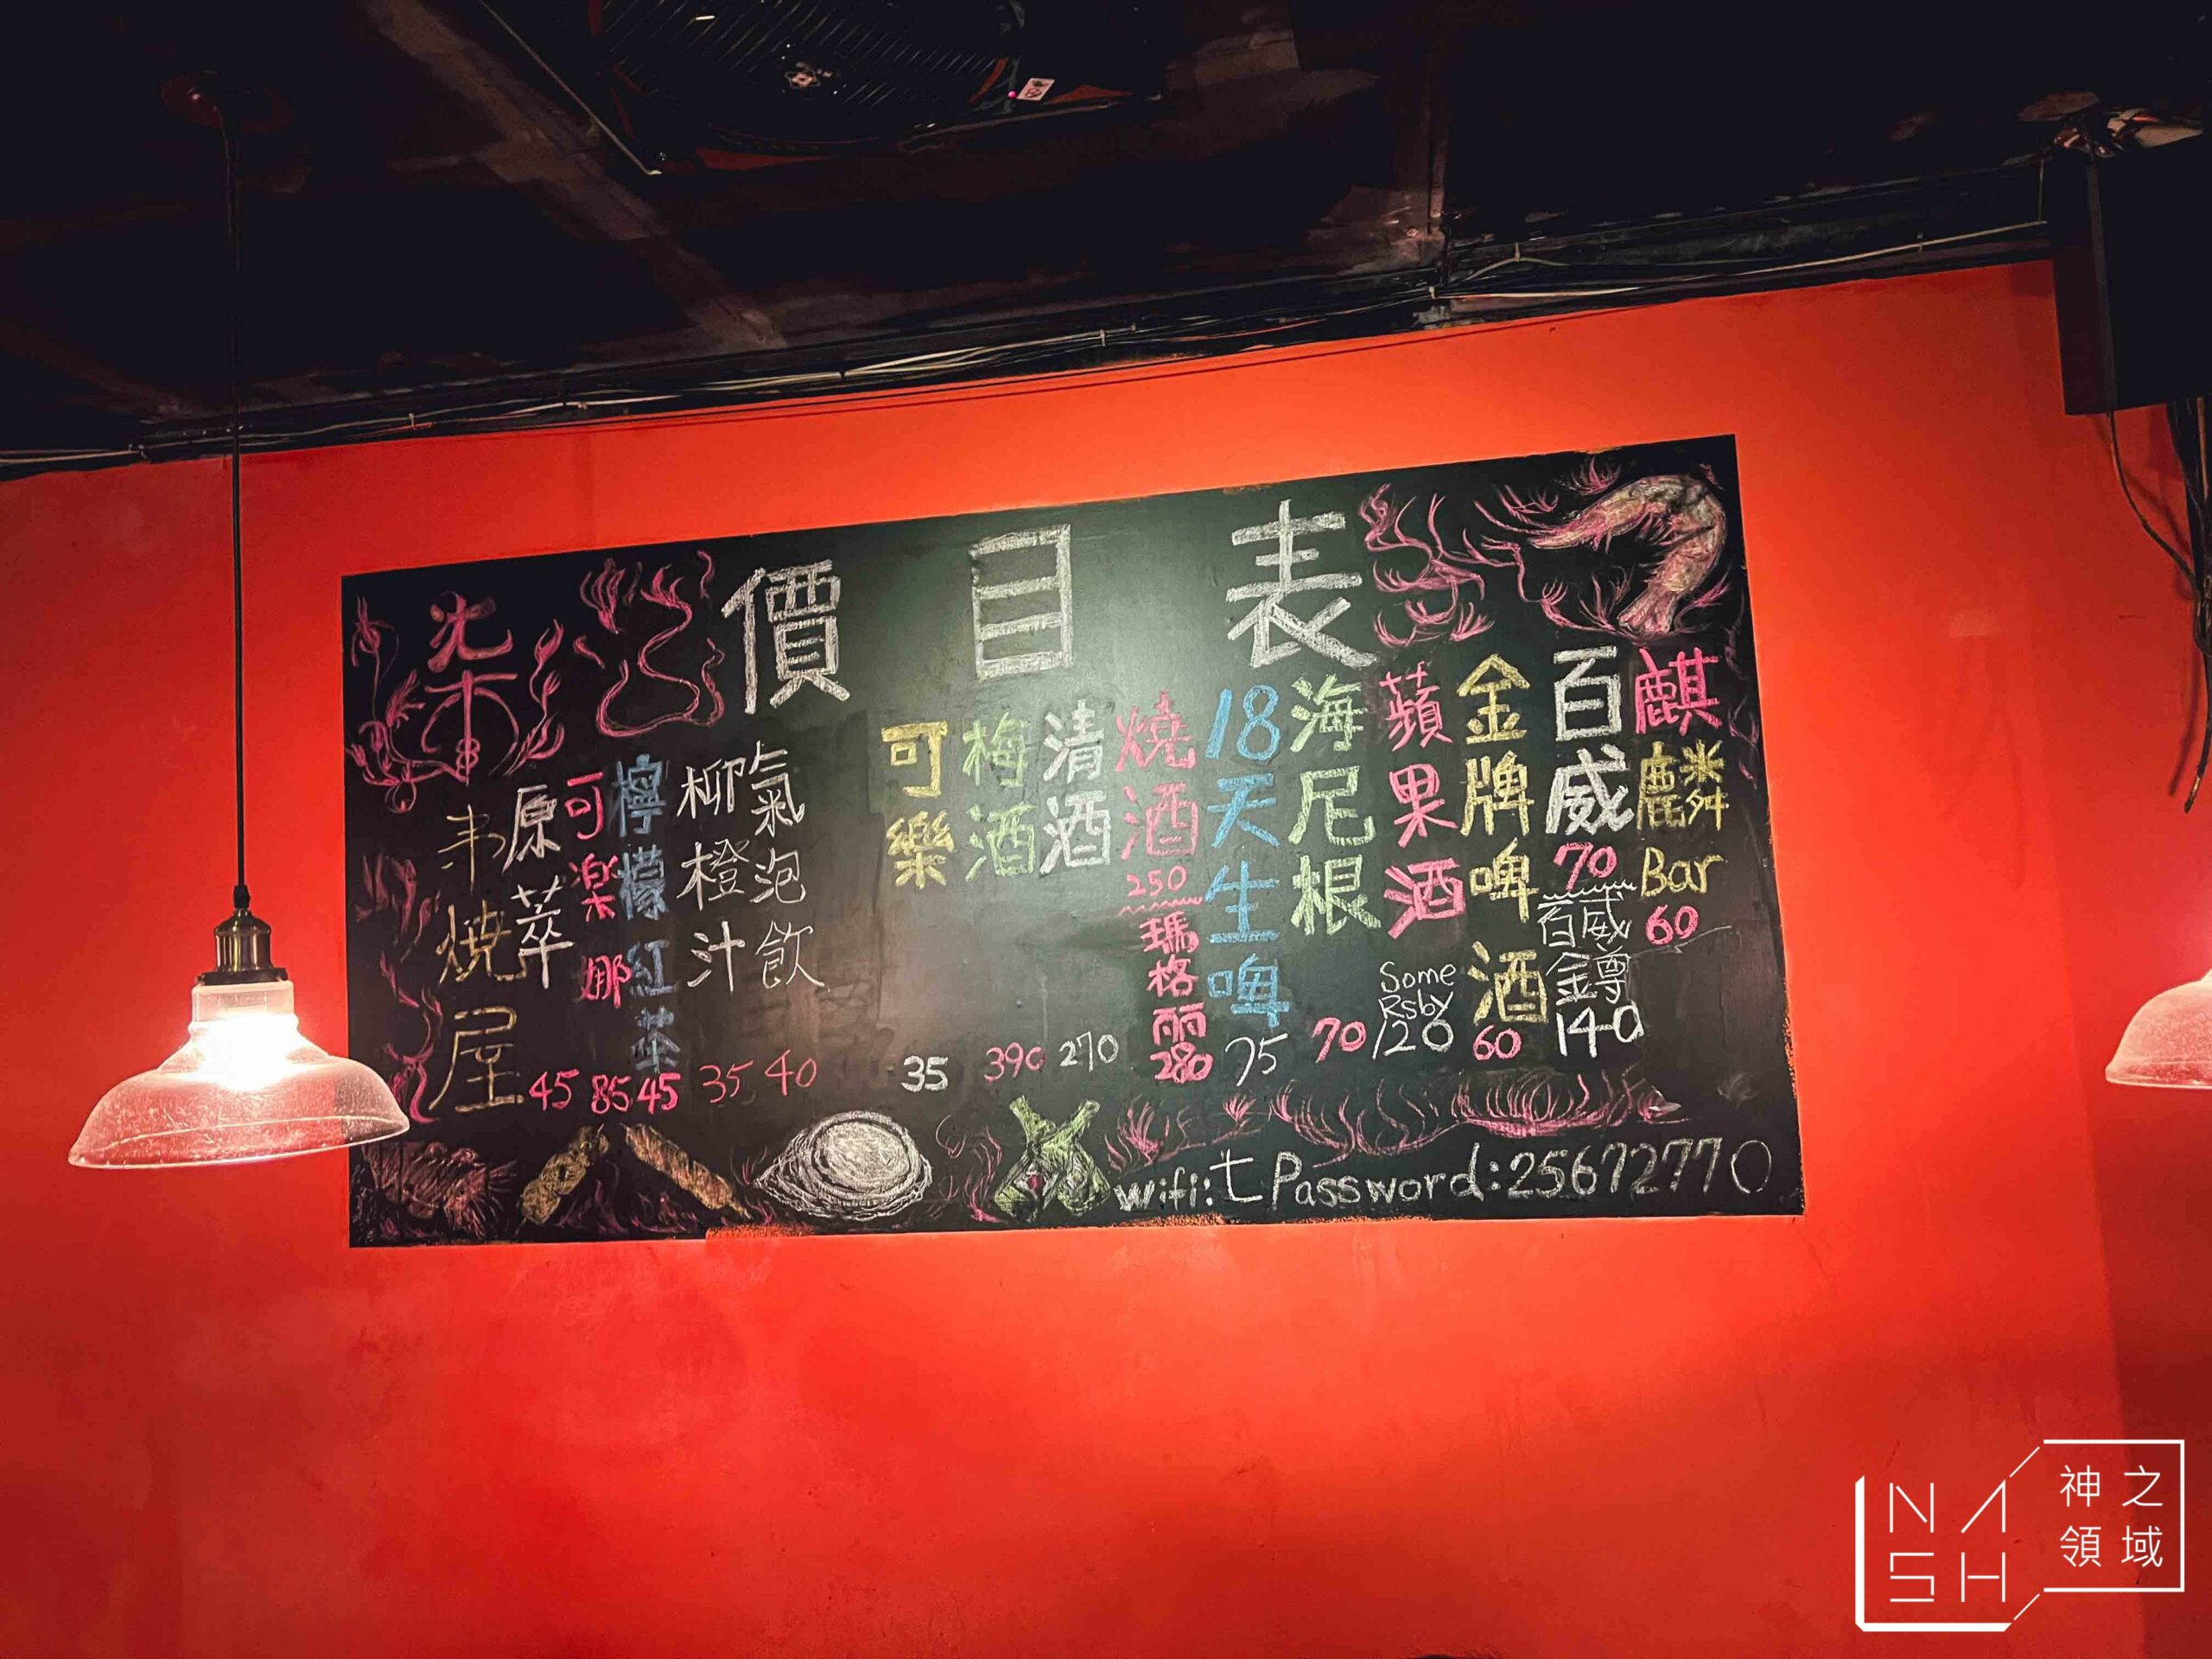 價目表
麒麟Bar 60
百威 70
百威金鐏 140
金牌啤酒 60
蘋果酒 Some Rsby 120
海尼根 70
18天生啤 75
燒酒 250
瑪格丽 280
清酒 270
梅酒 390
可樂 35
氣泡飲 40
柳橙汁 35
檸檬紅茶 45
可楽娜 85
原萃 45
柒
串燒屋
wifi:七 Password:25672770
NASH
神之領域